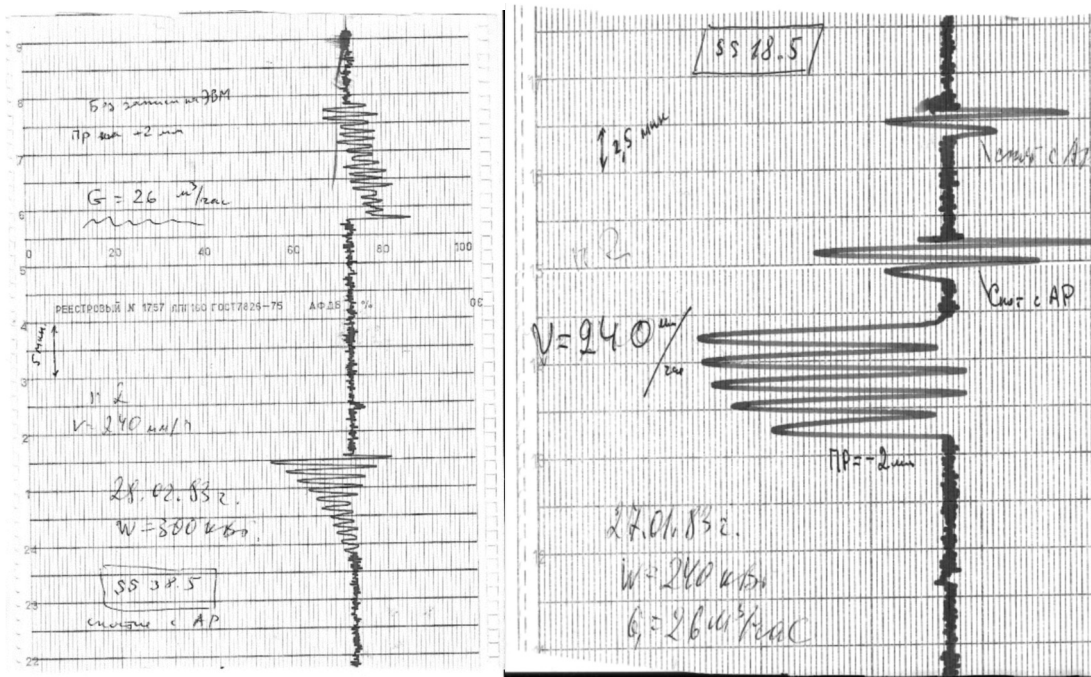 9
8
Без записи на ЭВМ
7
G = 26 м³/час
6
0 20 40 60 80 100
5
РЕЕСТРОВЫЙ N 1757 ГОСТ7826-75 %
4
5 мин
3
п 2
V = 240 мм/ч
2
28.02.83г.
W = 300 квт.
24
SS 38.5
23
снятие с АР
22
SS 18.5
2,5 мин
снят с АР
п 2
Снят с АР
V = 240 мм/час
ПР = -2мм
27.01.83г.
W = 240 квт
G = 26 м³/час